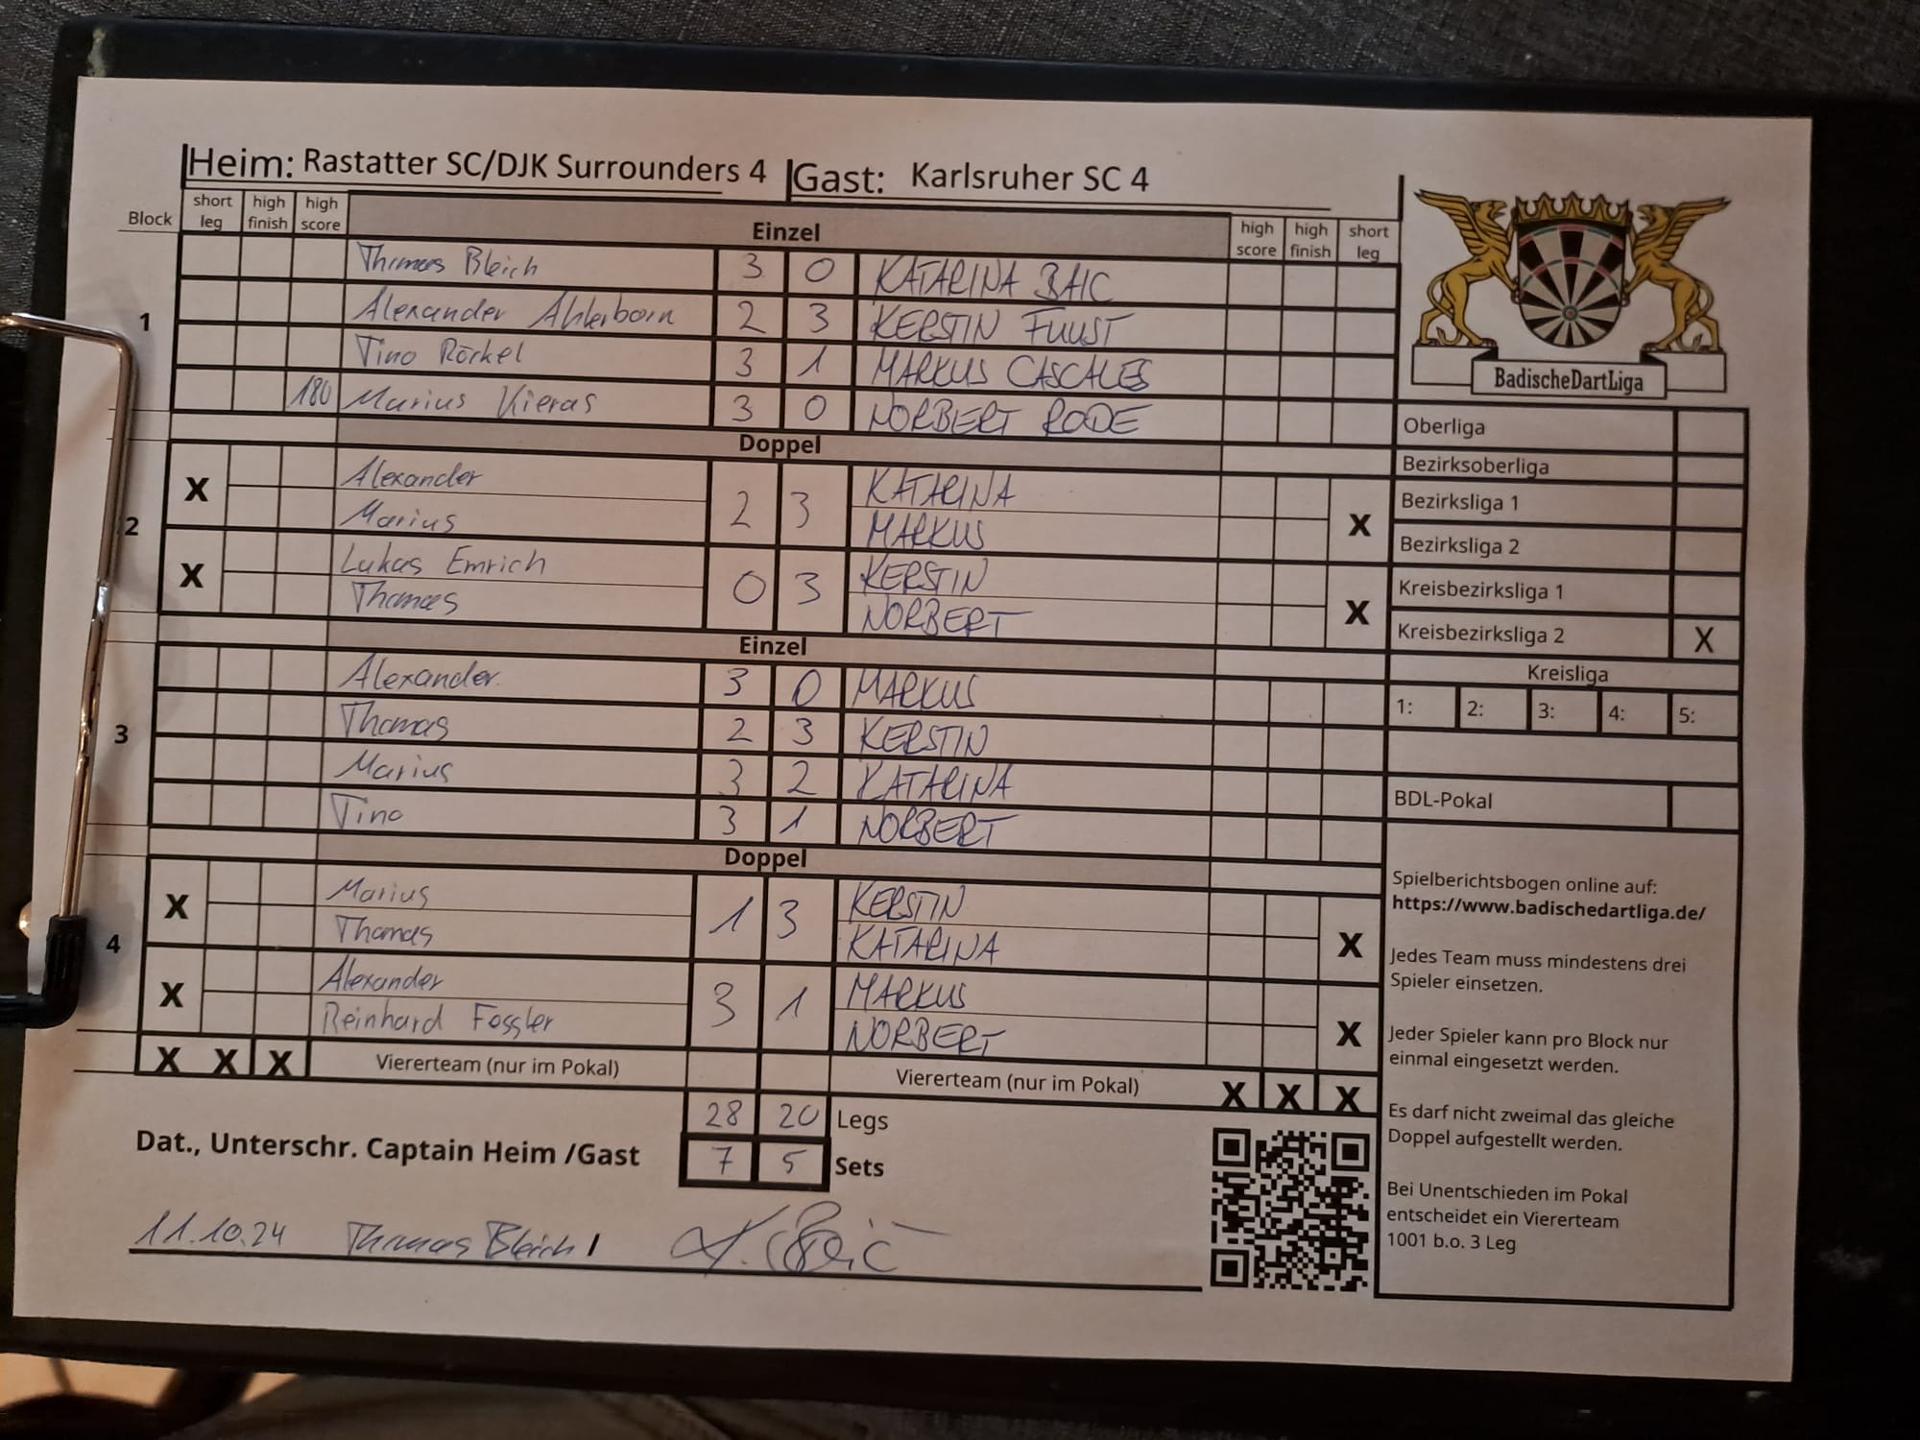 Heim: Rastatter SC/DJK Surrounders 4 Gast: Karlsruher SC 4
Block short leg high finish high score Einzel high score high finish short leg
1
Thomas Bleich 3 0 KATARINA BAIC
Alexander Ahlerborn 2 3 KERSTIN FUUST
Tino Rörkel 3 1 MARKUS CASCALES
180 Marius Kieras 3 0 NORBERT RODE
Doppel
2
X Alexander 2 3 KATARINA X
Marius MARKUS
X Lukas Emrich 0 3 KERSTIN X
Thomas NORBERT
Einzel
3
Alexander 3 0 MARKUS
Thomas 2 3 KERSTIN
Marius 3 2 KATARINA
Tino 3 1 NORBERT
Doppel
4
X Marius 1 3 KERSTIN X
Thomas KATARINA
X Alexander 3 1 MARKUS X
Reinhard Fossler NORBERT
X X X Viererteam (nur im Pokal) Viererteam (nur im Pokal) X X X
28 20 Legs
Dat., Unterschr. Captain Heim /Gast 7 5 Sets
11.10.24 Thomas Bleich /
BadischeDartLiga
Oberliga
Bezirksoberliga
Bezirksliga 1
Bezirksliga 2
Kreisbezirksliga 1
Kreisbezirksliga 2 X
Kreisliga
1: 2: 3: 4: 5:
BDL-Pokal
Spielberichtsbogen online auf:
https://www.badischedartliga.de/
Jedes Team muss mindestens drei
Spieler einsetzen.
Jeder Spieler kann pro Block nur
einmal eingesetzt werden.
Es darf nicht zweimal das gleiche
Doppel aufgestellt werden.
Bei Unentschieden im Pokal
entscheidet ein Viererteam
1001 b.o. 3 Leg